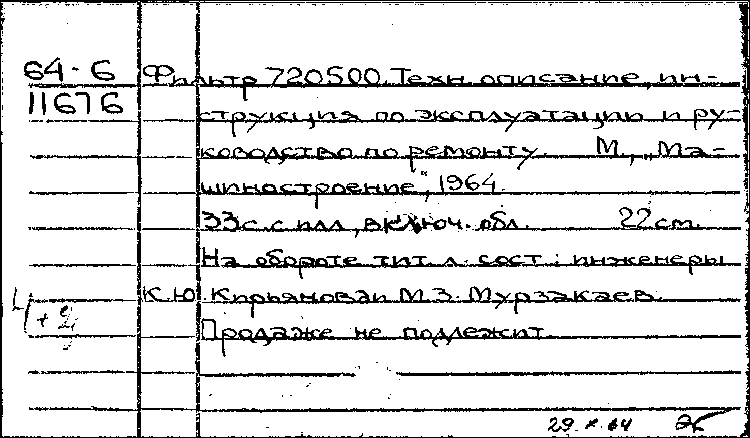 64-6 Фильтр 720500. Техн. описание, ин-
11676 струкция по эксплуатации и ру-
ководство по ремонту. М., „Ма-
шиностроение", 1964.
33с. с илл., включ. обл. 22 см.
На обороте тит. л. сост.: инженеры
К.Ю. Кирьянова и М.З. Мурзакаев.
Продаже не подлежит.
29.X.64